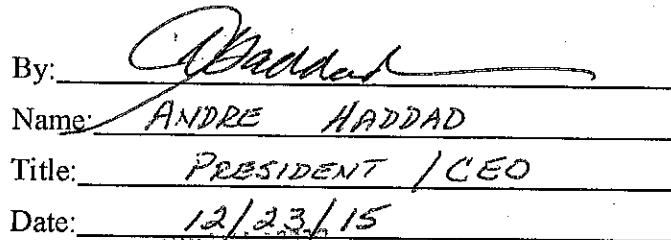 By: AHaddad
Name: ANDRE HADDAD
Title: PRESIDENT / CEO
Date: 12/23/15